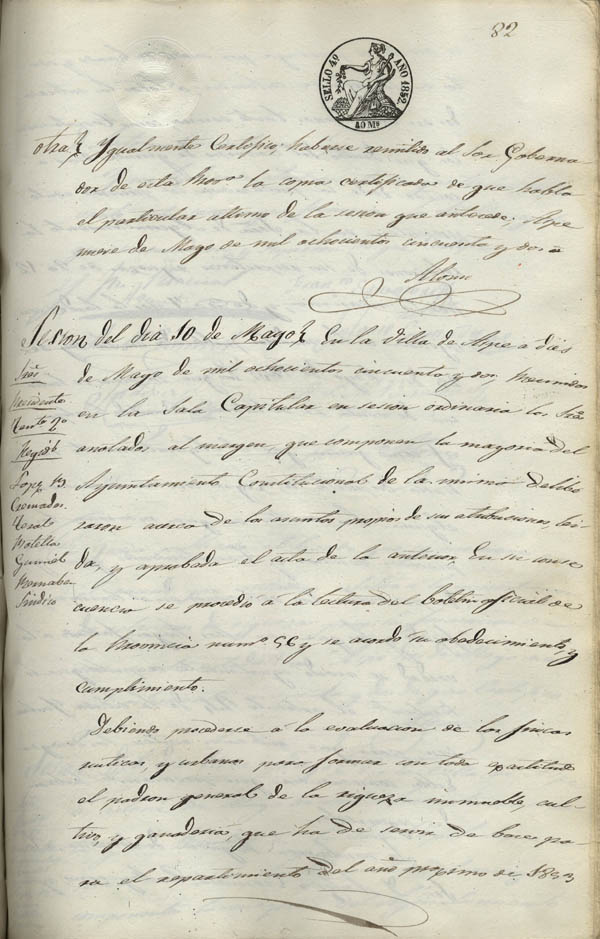 82
SELLO 4º AÑO 1852.
40 Ms
otra Ygualmente Certifico, haberse remitido al Sor Goberna
dor de esta Prova la copia certificada de que habla
el particular ultimo de la sesion que antecede; Aspe
nueve de Mayo de mil ochocientos cincuenta y dos =
Sesion del dia 10 de Mayo En la Villa de Aspe a diez
de Mayo de mil ochocientos cincuenta y dos, reunidos
en la Sala Capitular en sesion ordinaria los Sres
anotados al margen, que componen la mayoria del
Ayuntamiento Constitucional de la misma delibe
raron acerca de los asuntos propios de sus atribuciones, lei
da, y aprobada el acta de la anterior. En su conse
cuencia se procedió á la lectura del boletin oficial de
la Provincia numº 56 y se acordó su obedecimiento, y
cumplimiento.
Sres
Presidente
Tente 2º
Regids
Cremades
Botella
Sindico
Debiendo procederse á la evaluacion de las fincas
rusticas, y urbanas para formar con toda exactitud
el padron general de la riqueza inmueble, cul-
tivo, y ganaderia, que ha de servir de base pa
ra el repartimiento del año proximo de 1853